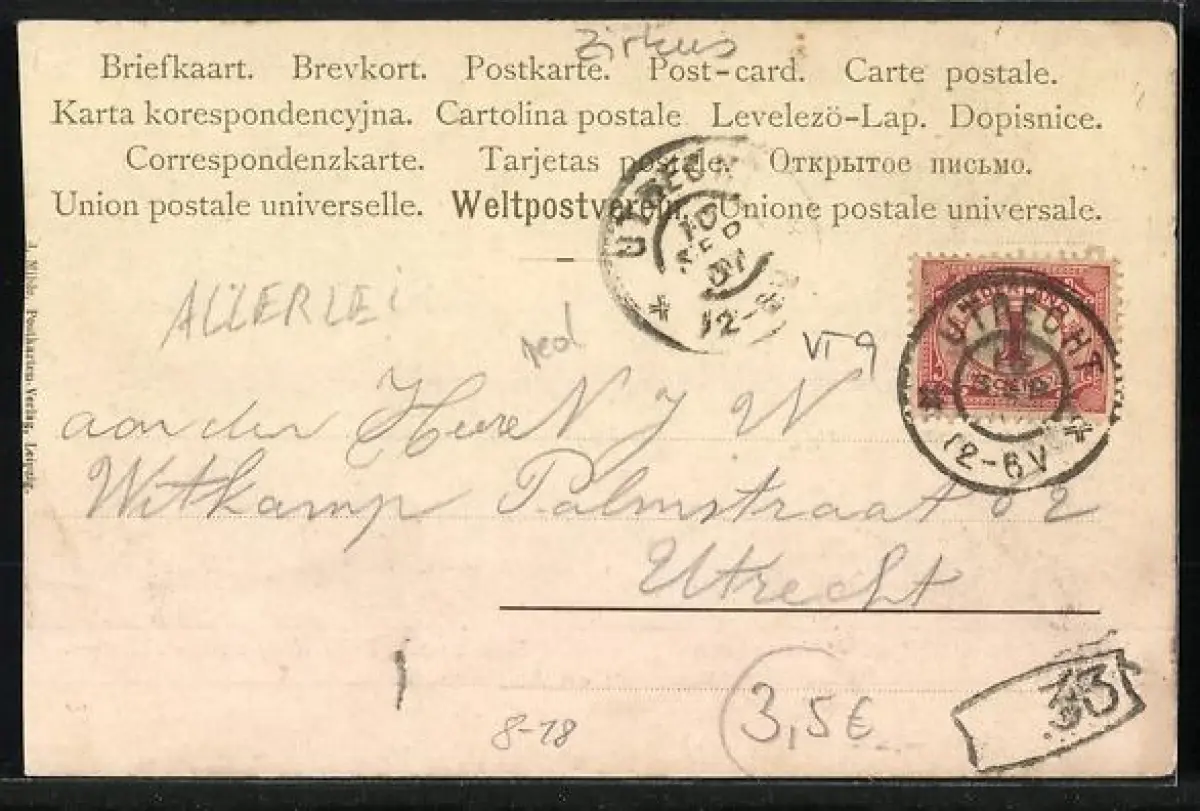 Zirkus
Briefkaart. Brevkort. Postkarte. Post-card. Carte postale.
Karta korespondencyjna. Cartolina postale Levelezö-Lap. Dopisnice.
Correspondenzkarte. Tarjetas postale. Открытое письмо.
Union postale universelle. Weltpostverein. Unione postale universale.
UTRECHT
10
SEP
12-
NEDERLAND
1
CENT
UTRECHT
12-6V
Postkarten-Verlag, Leipzig.
ALLERLEI
ned
VI 9
aan den Heere N J W
Witkamp Palmstraat 62
Utrecht
8-18
3,5€
33